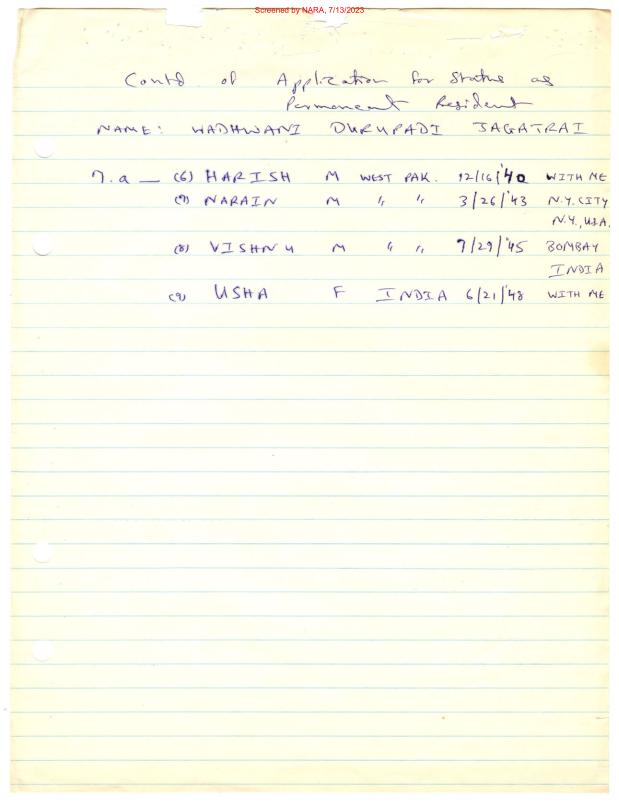 Screened by NARA, 7/13/2023
Contd of Application for Status as
Permanent Resident
NAME: WADHWANI DURUPADI JAGATRAI
7.a — (6) HARISH M WEST PAK. 12/16/'40 WITH ME
(7) NARAIN M " " 3/26/'43 N.Y. CITY
N.Y., U.S.A.
(8) VISHNU M " " 7/29/'45 BOMBAY
INDIA
(9) USHA F INDIA 6/21/'48 WITH ME